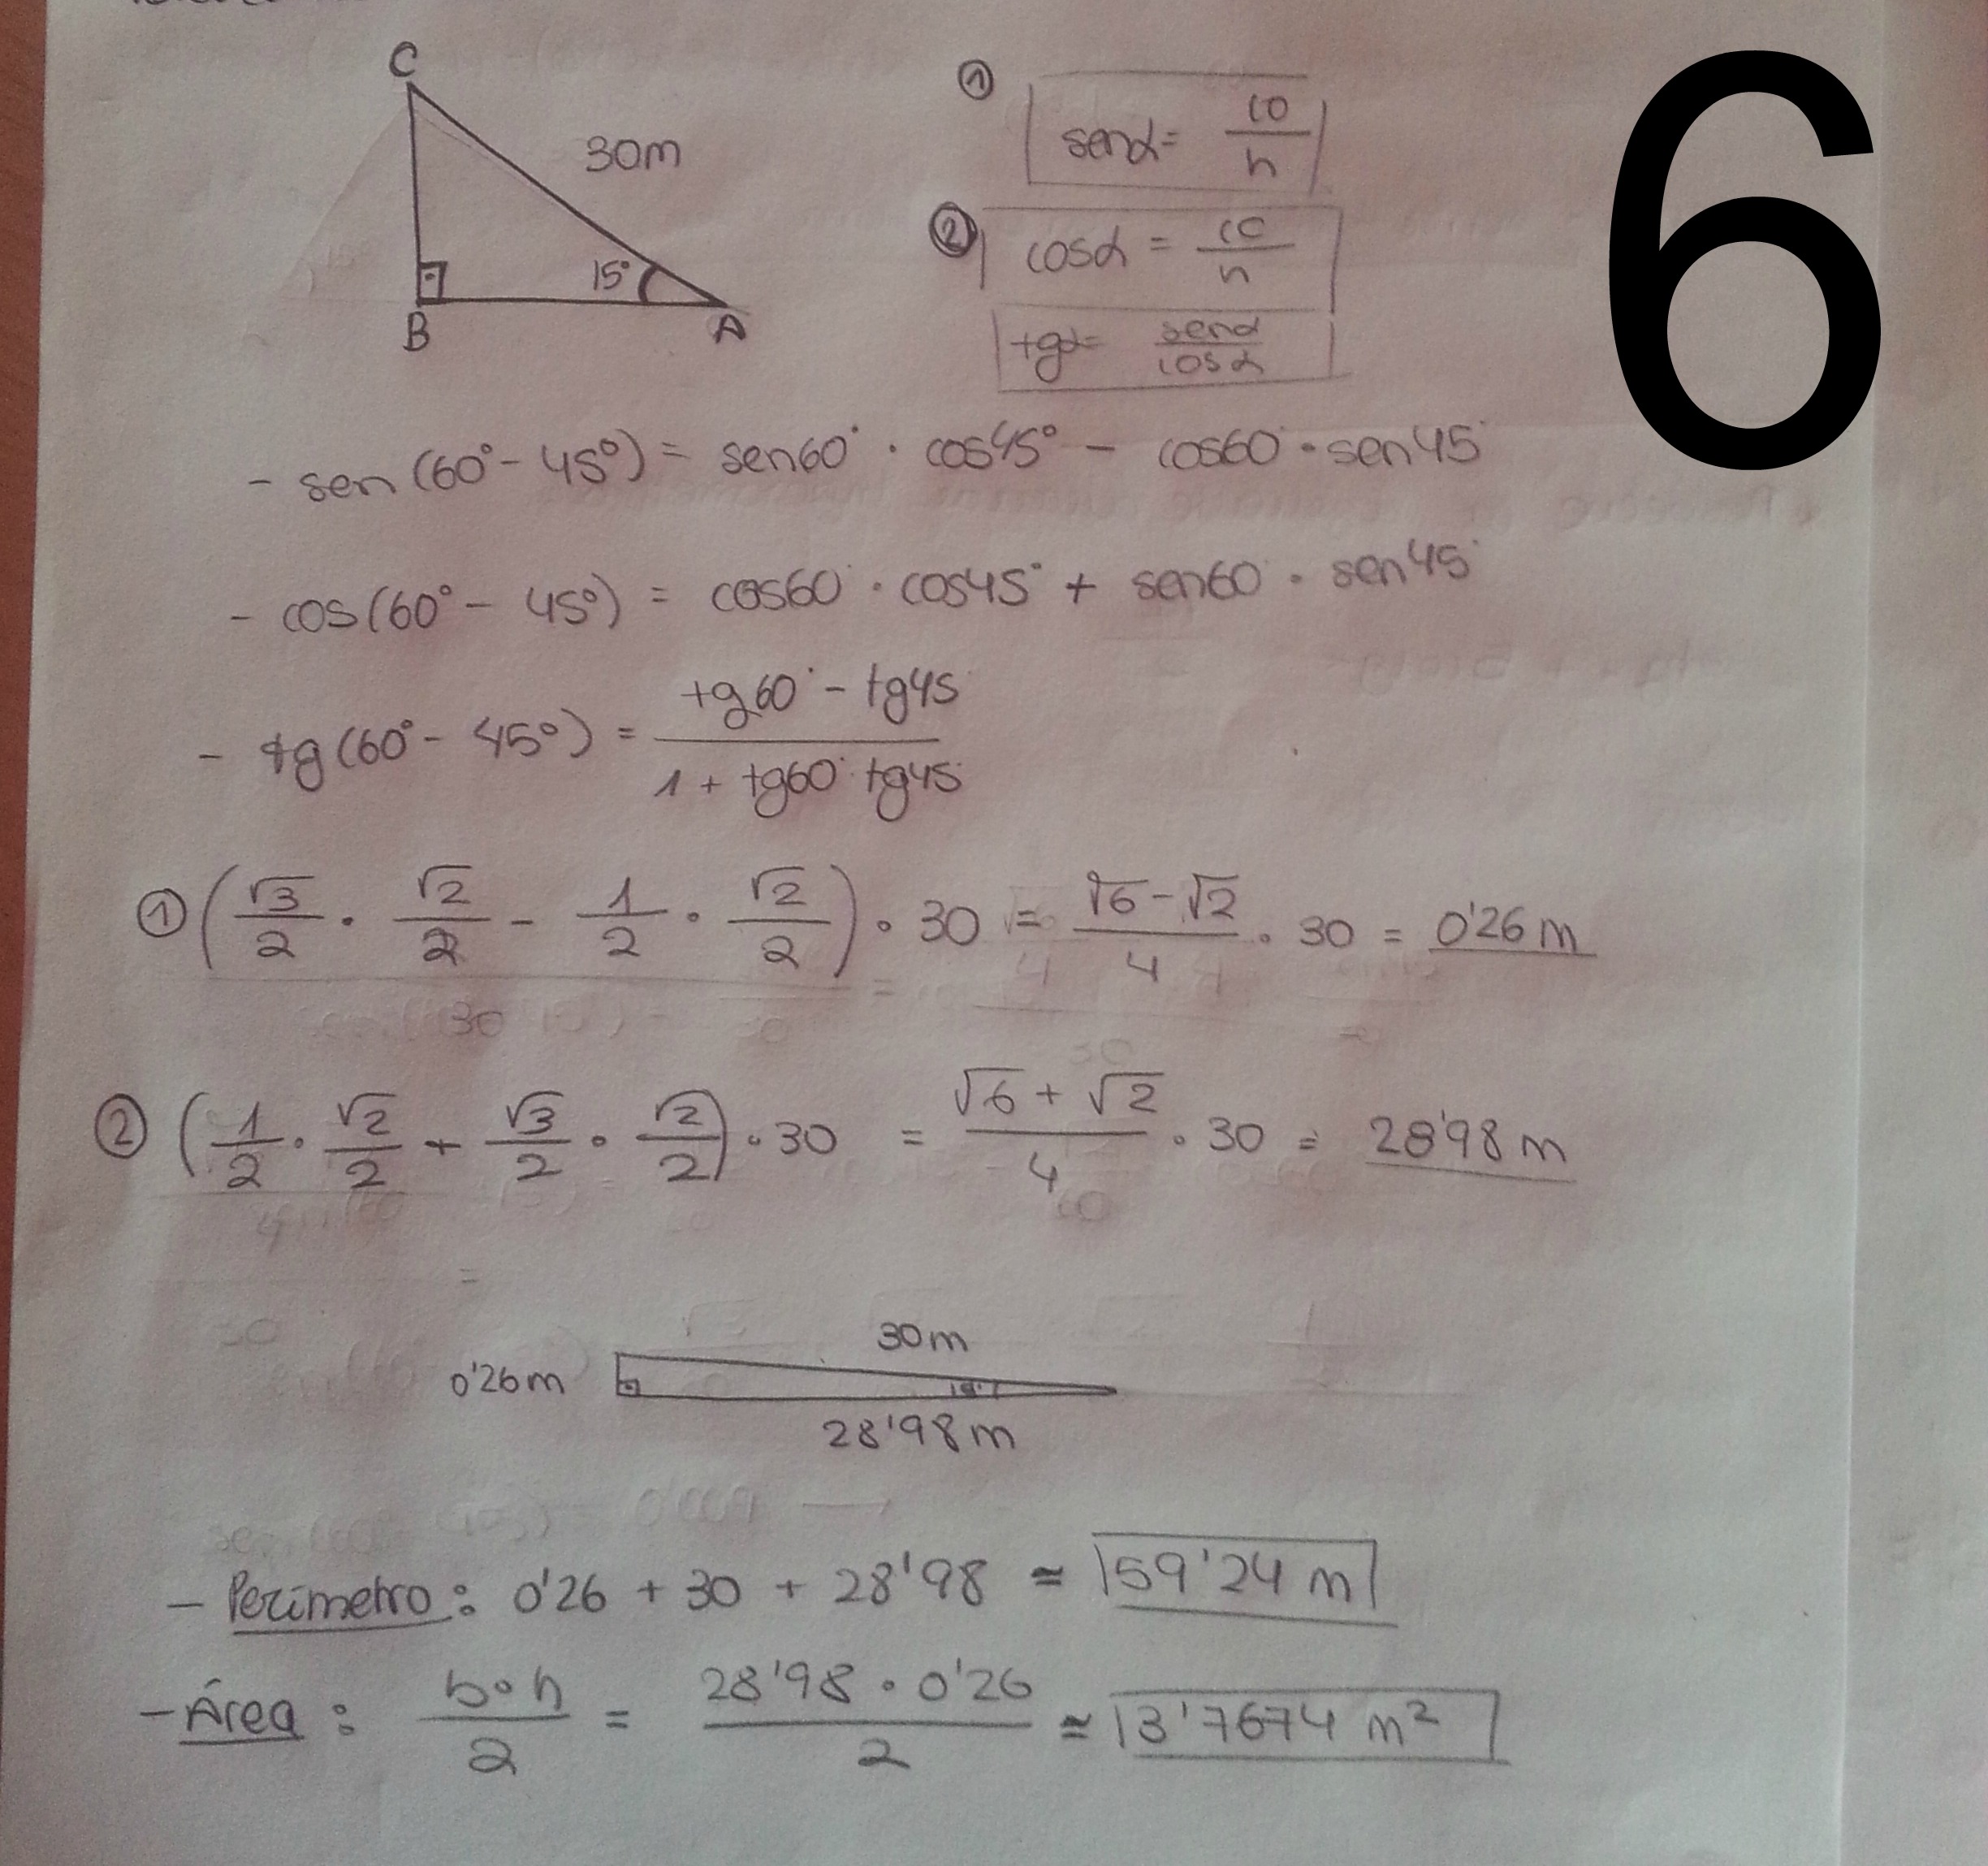 C
30m
15°
B
A
① senα = co/h
② cosα = cc/h
tgα = senα/cosα
6
- sen(60° - 45°) = sen60° · cos45° - cos60° · sen45°
- cos(60° - 45°) = cos60° · cos45° + sen60° · sen45°
- tg(60° - 45°) = (tg60° - tg45)/(1 + tg60° · tg45)
① (√3/2 · √2/2 - 1/2 · √2/2) · 30 = (√6 - √2)/4 · 30 = 0'26 m
② (1/2 · √2/2 + √3/2 · √2/2) · 30 = (√6 + √2)/4 · 30 = 28'98 m
30m
0'26m
28'98m
- Perímetro: 0'26 + 30 + 28'98 ≃ 59'24 m
- Área: b·h/2 = 28'98 · 0'26/2 ≃ 3'7674 m²